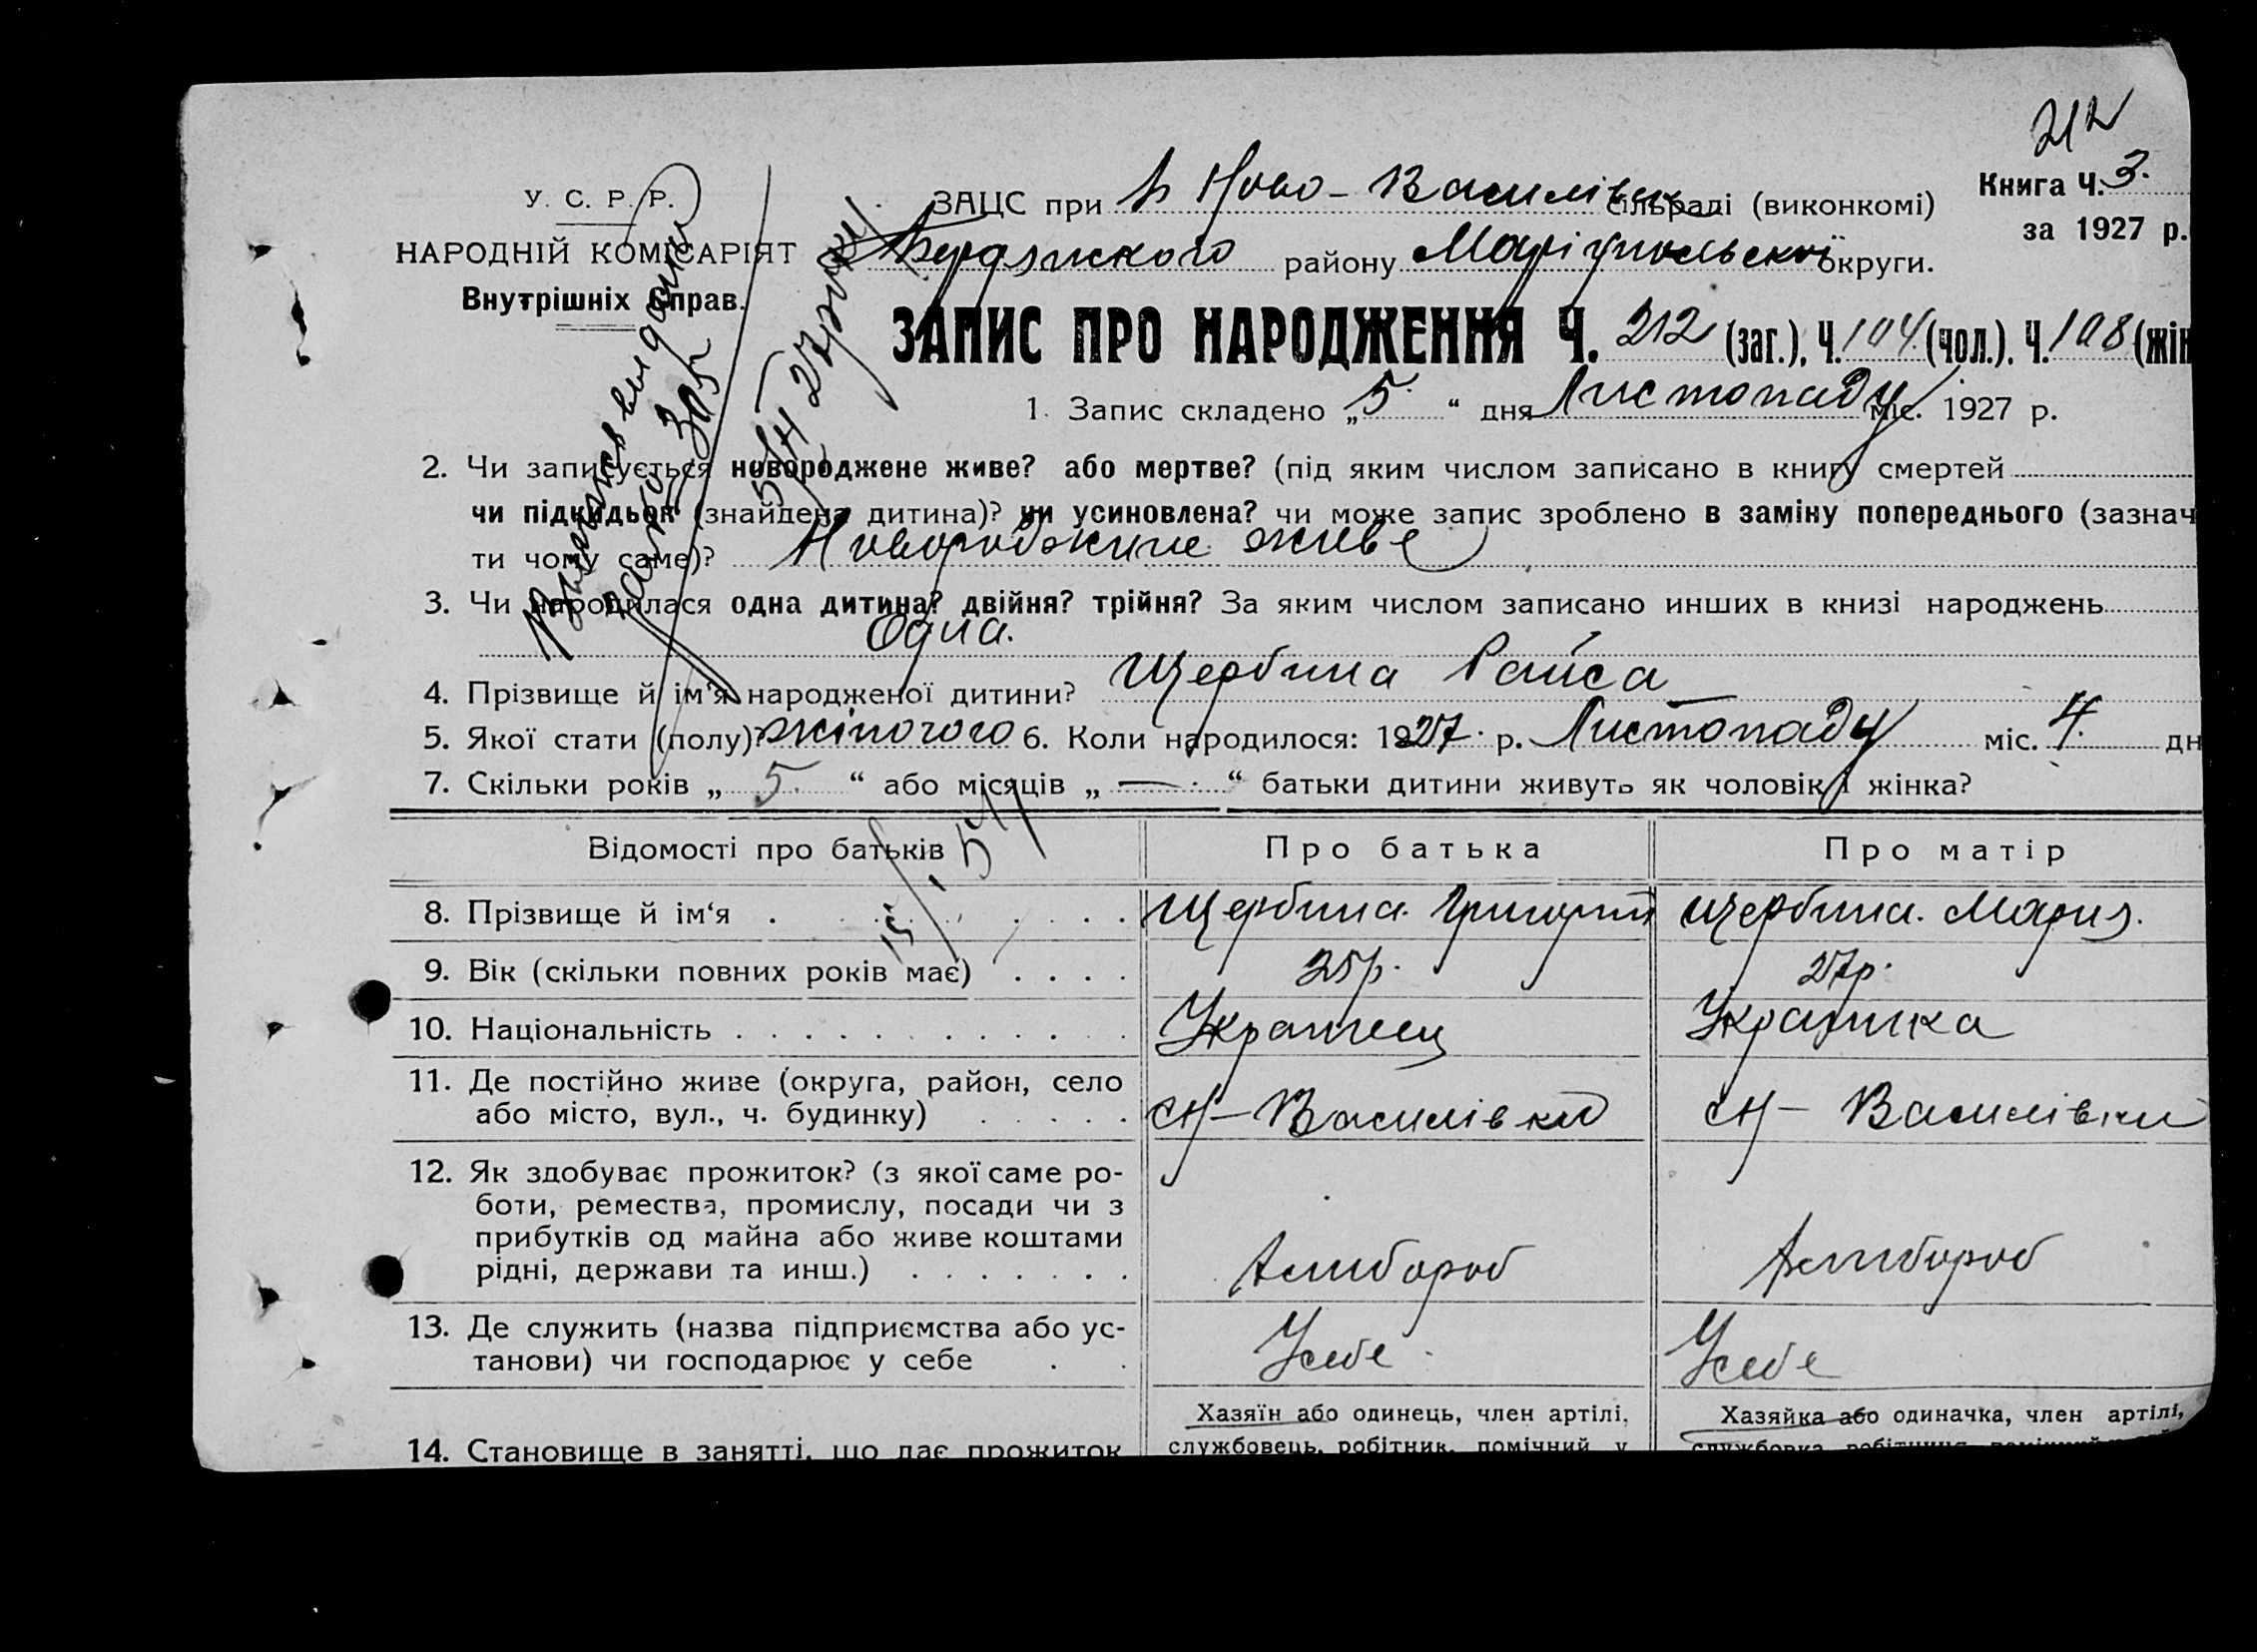 212
У. С. Р. Р.
НАРОДНІЙ КОМІСАРІЯТ
Внутрішніх Справ.
ЗАЦС при Ново-Василівск сільраді (виконкомі)
Книга Ч. 3.
за 1927 р.
Бердянского району Маріупольської округи.
ЗАПИС ПРО НАРОДЖЕННЯ Ч. 212 (заг.), Ч. 104 (чол.), Ч. 108 (жін
1. Запис складено „5“ дня Листопаду міс. 1927 р.
2. Чи записується новороджене живе? або мертве? (під яким числом записано в книгу смертей
чи підкидьок (знайдена дитина)? чи усиновлена? чи може запис зроблено в заміну попереднього (зазнач
ти чому саме)? Новорожине живе
3. Чи народилася одна дитина? двійня? трійня? За яким числом записано инших в книзі народжень
Одна.
4. Прізвище й ім‘я народженої дитини? Щербина Раиса
5. Якої стати (полу)? жіночого 6. Коли народилося: 1927 р. Листопаду міс. 4. дн
7. Скільки років „5.“ або місяців „—“ батьки дитини живуть як чоловік і жінка?
Відомості про батьків Про батька Про матір
8. Прізвище й ім‘я Щербина Григорий Щербина Мария.
9. Вік (скільки повних років має) 25р. 27р.
10. Національність Украинец Украинка
11. Де постійно живе (округа, район, село
або місто, вул., ч. будинку) сН-Василівки сН-Василівки
12. Як здобуває прожиток? (з якої саме ро-
боти, ремества, промислу, посади чи з
прибутків од майна або живе коштами
рідні, держави та инш.) Хлибороб Хлибороб
13. Де служить (назва підприємства або ус-
танови) чи господарює у себе Усебе Усебе
Хазяїн або одинець, член артілі, Хазяйка або одиначка, член артілі,
14. Становище в занятті, що дає прожиток службовець, робітник, помічний у службовка робітниця